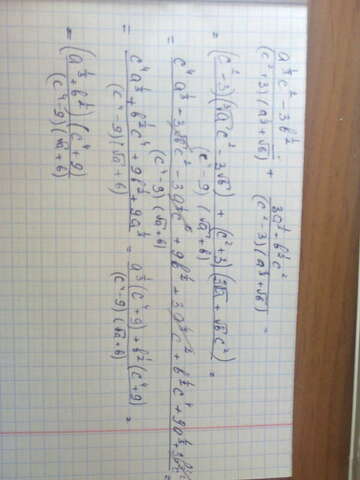 (a^{1/2}c^2 - 3b^{1/2}) / ((c^2+3)(a^{1/2}+√b)) + (3a^{1/2} + b^{1/2}c^2) / ((c^2-3)(a^{1/2}+√b)) =
= ((c^2-3)(√a c^2 - 3√b) + (c^2+3)(3√a + √b c^2)) / (c^4-9)(√a+b) =
= (c^4 a^{1/2} - 3√b c^2 - 3a^{1/2}c^2 + 9b^{1/2} + 3a^{1/2}c^2 + b^{1/2}c^4 + 9a^{1/2} + 3b^{1/2}c^2) / (c^4-9)(√a+b) =
= (c^4 a^{1/2} + b^{1/2}c^4 + 9b^{1/2} + 9a^{1/2}) / (c^4-9)(√a+b) = (a^{1/2}(c^4+9) + b^{1/2}(c^4+9)) / (c^4-9)(√a+b) =
= (a^{1/2}+b^{1/2})(c^4+9) / (c^4-9)(√a+b)